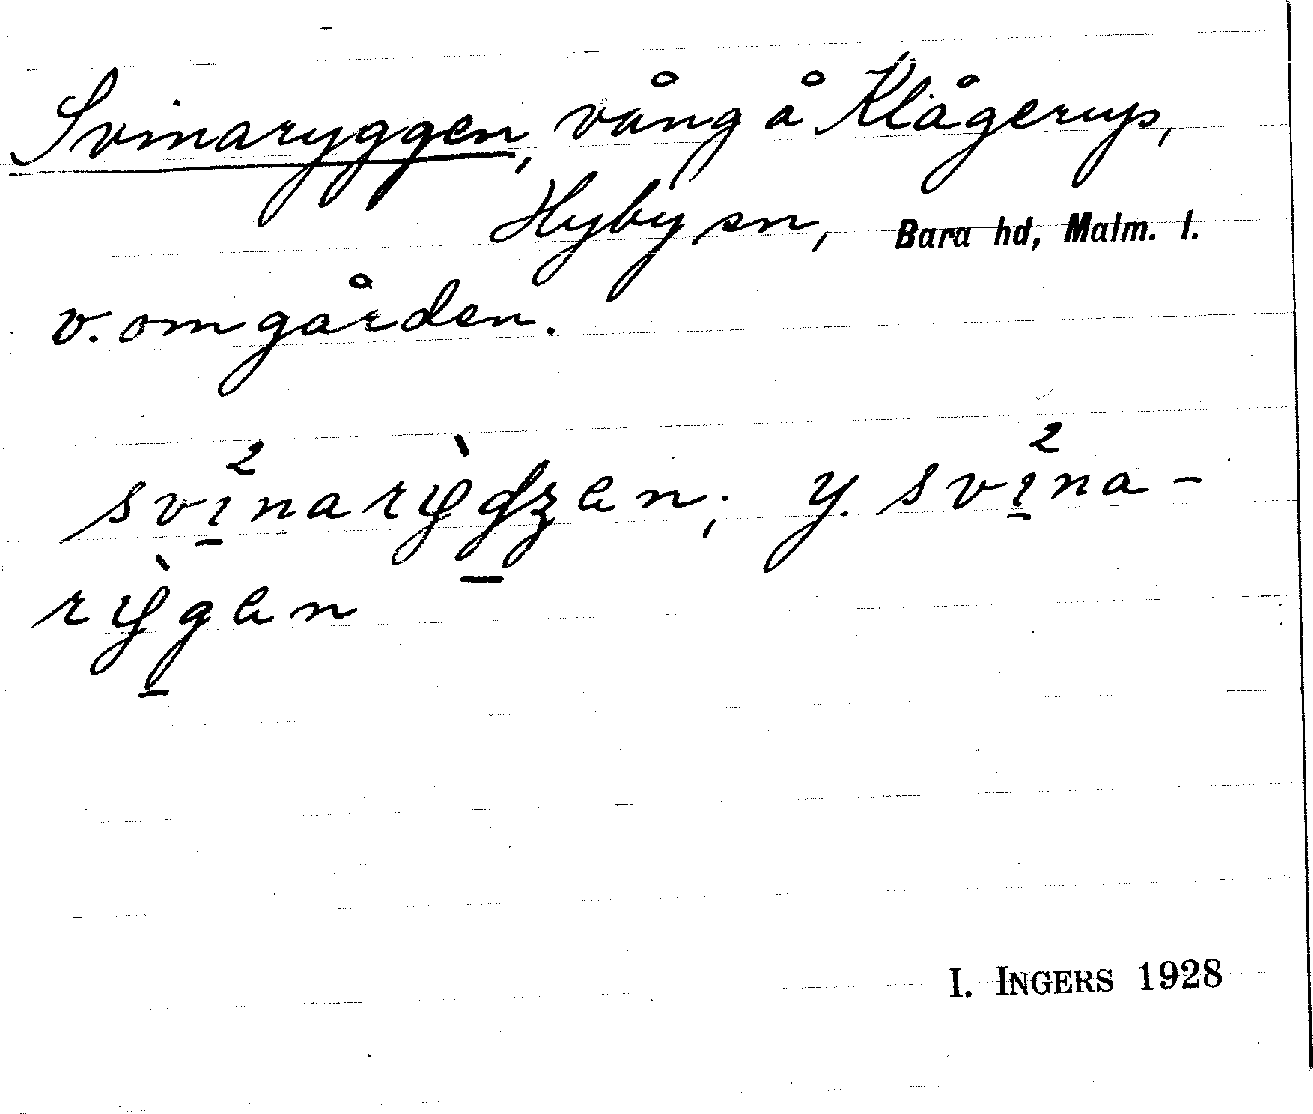 Svinaryggen, vång å Klågerup,
Hyby sn, Bara hd, Malm. l.
v. om gården.
svi̱²narỳd̠ʒen; y. svi̱²na-
rỳg̠en
I. INGERS 1928